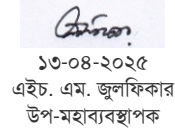 ১৩-০৪-২০২৫
এইচ. এম. জুলফিকার
উপ-মহাব্যবস্থাপক